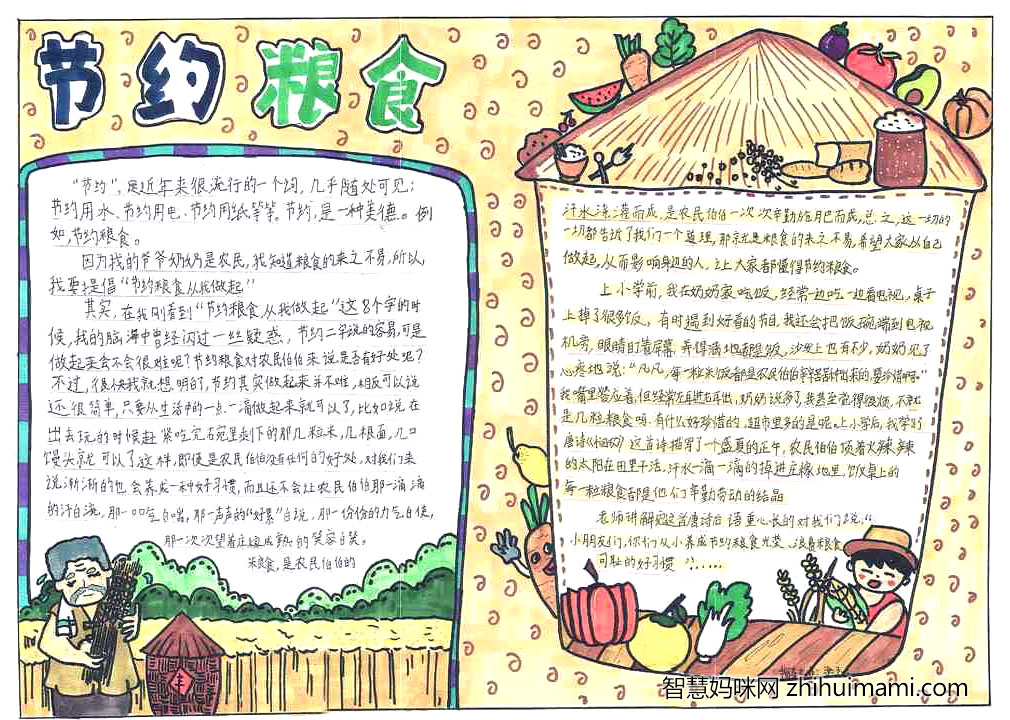 节约粮食
“节约”，是近年来很流行的一个词，几乎随处可见：
节约用水、节约用电、节约用纸等等。节约，是一种美德。例
如，节约粮食。
因为我的爷爷奶奶是农民，我知道粮食的来之不易，所以，
我要提倡“节约粮食从我做起”
其实，在我刚看到“节约粮食从我做起”这8个字的时
候，我的脑海中曾经闪过一丝疑惑，节约二字说的容易，可是
做起来会不会很难呢？节约粮食对农民伯伯来说是否有好处呢？
不过，很快我就想明白了，节约其实做起来并不难，相反可以说
还很简单，只要从生活中的一点一滴做起来就可以了，比如说在
出去玩的时候赶紧吃完在碗里剩下的那几粒米，几根面，几口
馒头就可以了这样，即使是农民伯伯没有任何的好处，对我们来
说渐渐的也会养成一种好习惯，而且还不会让农民伯伯那一滴滴
的汗白流，那一口口气白喘，那一声声的“好累”白说，那一份份的力气白使，
那一次次望着庄稼成熟的笑容白笑。
粮食，是农民伯伯的
汗水浇灌而成，是农民伯伯一次次辛勤施肥而成，总之，这一切的
一切都告诉了我们一个道理，那就是粮食的来之不易，希望大家从自己
做起，从而影响身边的人，让大家都懂得节约粮食。
上小学前，我在奶奶家吃饭，经常一边吃一边看电视，桌子
上掉了很多饭，有时遇到好看的节目，我还会把饭碗端到电视
机旁，眼睛盯着屏幕，弄得满地都是饭，沙发上也有不少。奶奶见了
心疼地说：“凡凡，每一粒米饭都是农民伯伯辛辛苦苦种出来的，要珍惜啊。”
我嘴里答应着，但经常左耳进右耳出，奶奶说多了，我甚至觉得很烦，不就
是几粒粮食吗，有什么好珍惜的，超市里多的是呢。上小学后，我学了
唐诗《悯农》这首诗描写了一个盛夏的正午，农民伯伯顶着火辣辣
的太阳在田里干活，汗水一滴一滴的掉进庄稼地里，饭桌上的
每一粒粮食都是他们辛勤劳动的结晶
老师讲解完这首唐诗后语重心长的对我们说：“
小朋友们，你们从小养成节约粮食光荣，浪费粮食
可耻的好习惯
丰
智慧妈咪网 zhihuimami.com